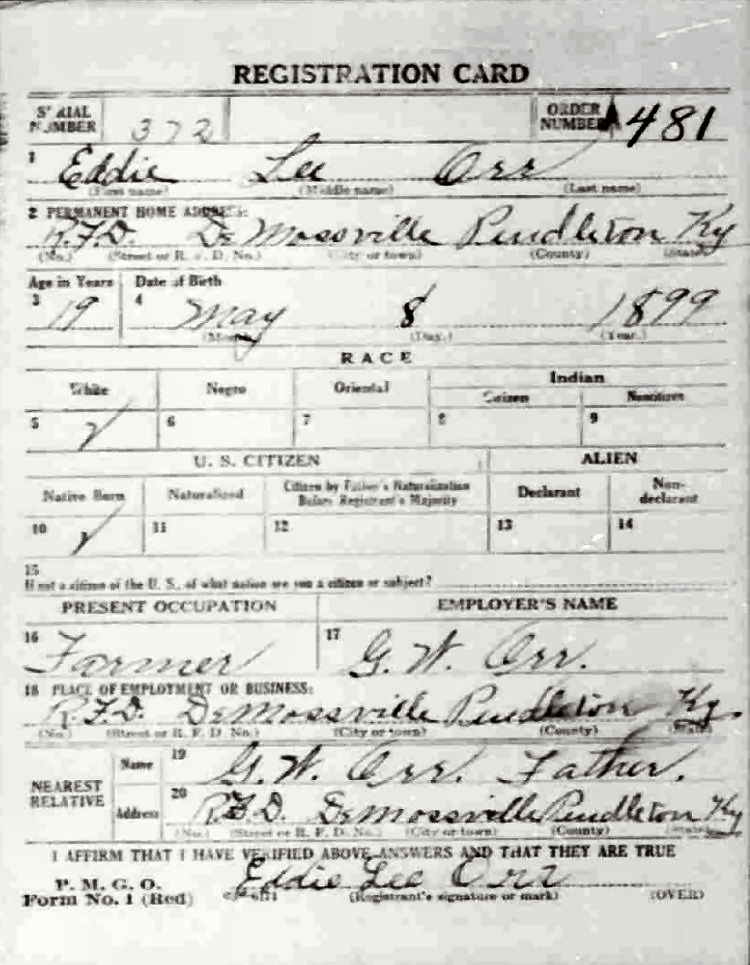 REGISTRATION CARD
SERIAL NUMBER 372 ORDER NUMBER A481
1 Eddie Lee Orr
(First name) (Middle name) (Last name)
2 PERMANENT HOME ADDRESS:
R.F.D. DeMossville Pendleton Ky
(No.) (Street or R. F. D. No.) (City or town) (County) (State)
Age in Years Date of Birth
3 19 4 May 8 1899
(Month.) (Day.) (Year.)
RACE
White Negro Oriental Indian
Citizen Noncitizen
5 ✓ 6 7 8 9
U. S. CITIZEN ALIEN
Native Born Naturalized Citizen by Father's Naturalization Before Registrant's Majority Declarant Non-declarant
10 ✓ 11 12 13 14
15
If not a citizen of the U. S., of what nation are you a citizen or subject?
PRESENT OCCUPATION EMPLOYER'S NAME
16 Farmer 17 G. W. Orr.
18 PLACE OF EMPLOYMENT OR BUSINESS:
R.F.D. DeMossville Pendleton Ky.
(No.) (Street or R. F. D. No.) (City or town) (County) (State)
NEAREST RELATIVE Name 19 G. W. Orr. Father.
Address 20 R.F.D. Demossville Pendleton Ky
(No.) (Street or R. F. D. No.) (City or town) (County) (State)
I AFFIRM THAT I HAVE VERIFIED ABOVE ANSWERS AND THAT THEY ARE TRUE
P. M. G. O.
Form No. 1 (Red) Eddie Lee Orr
(Registrant's signature or mark) (OVER)